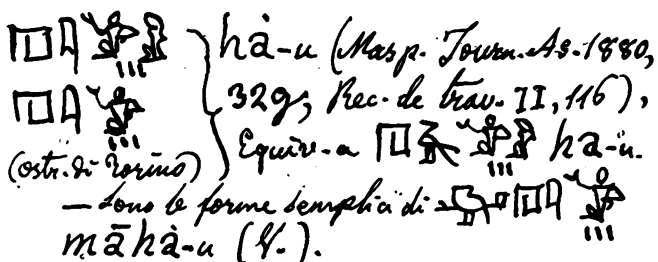 hȧ-u (Masp. Journ. As. 1880,
329; Rec. de trav. II, 116),
Equiv. a ha-u.
(ostr. di Torino)
— Sono le forme semplici di
māhȧ-u (V.).